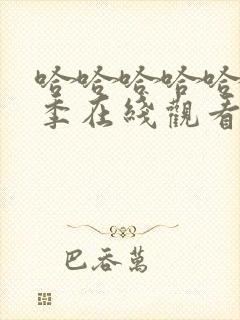 哈哈哈哈哈
季在綫觀看
巴吞萬